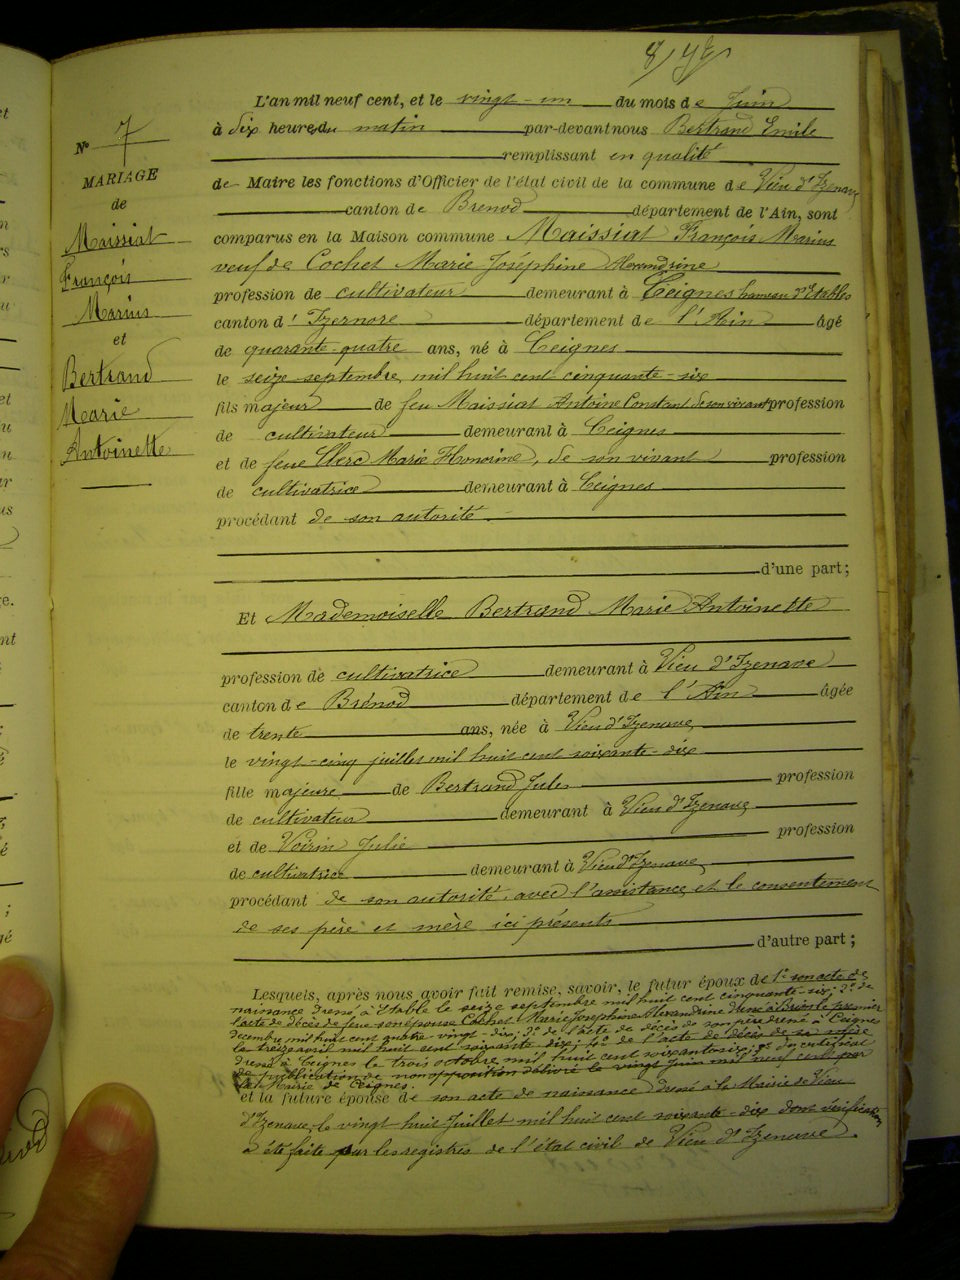 N° 7
MARIAGE
de
Maissiat
François
Marius
et
Bertrand
Marie
Antoinette
L'an mil neuf cent, et le vingt-un du mois de Juin
à dix heures du matin par-devant nous Bertrand Emile
remplissant en qualité
de Maire les fonctions d'Officier de l'état civil de la commune de Vieu d'Izenave
canton de Brenod département de l'Ain, sont
comparus en la Maison commune Maissiat François Marius
veuf de Cochet Marie Joséphine Alexandrine
profession de cultivateur demeurant à Ceignes hameau d'Etables
canton d'Izernore département de l'Ain âgé
de quarante-quatre ans, né à Ceignes
le seize septembre mil huit cent cinquante-six
fils majeur de feu Maissiat Antoine Constant de son vivant profession
de cultivateur demeurant à Ceignes
et de feue Clerc Marie Honorine, de son vivant profession
de cultivatrice demeurant à Ceignes
procédant de son autorité
d'une part;
Et Mademoiselle Bertrand Marie Antoinette
profession de cultivatrice demeurant à Vieu d'Izenave
canton de Brénod département de l'Ain âgée
de trente ans, née à Vieu d'Izenave
le vingt-cinq juillet mil huit cent soixante-dix
fille majeure de Bertrand Jules profession
de cultivateur demeurant à Vieu d'Izenave
et de Voirin Julie profession
de cultivatrice demeurant à Vieu d'Izenave
procédant de son autorité, avec l'assistance et le consentement
de ses père et mère ici présents
d'autre part;
Lesquels, après nous avoir fait remise, savoir, le futur époux de 1° son acte de
naissance dressé à Etable le seize septembre mil huit cent cinquante-six; 2° de
l'acte de décès de feue son épouse Cochet Marie Joséphine Alexandrine le premier
decembre mil huit cent quatre vingt-dix; 3° de l'acte de décès de son père dressé à Ceignes
le treize avril mil huit cent soixante dix; 4° de l'acte de décès de sa mère
dressé à Ceignes le trois octobre mil huit cent soixante 5° du certificat
de publication de non opposition délivré le vingt Juin mil neuf cent par
la Mairie de Ceignes.
et la future épouse de son acte de naissance dressé à la Mairie de Vieu
d'Izenave, le vingt huit Juillet mil huit cent soixante-dix dont vérification
a été faite sur les registres de l'état civil de Vieu d'Izenave.